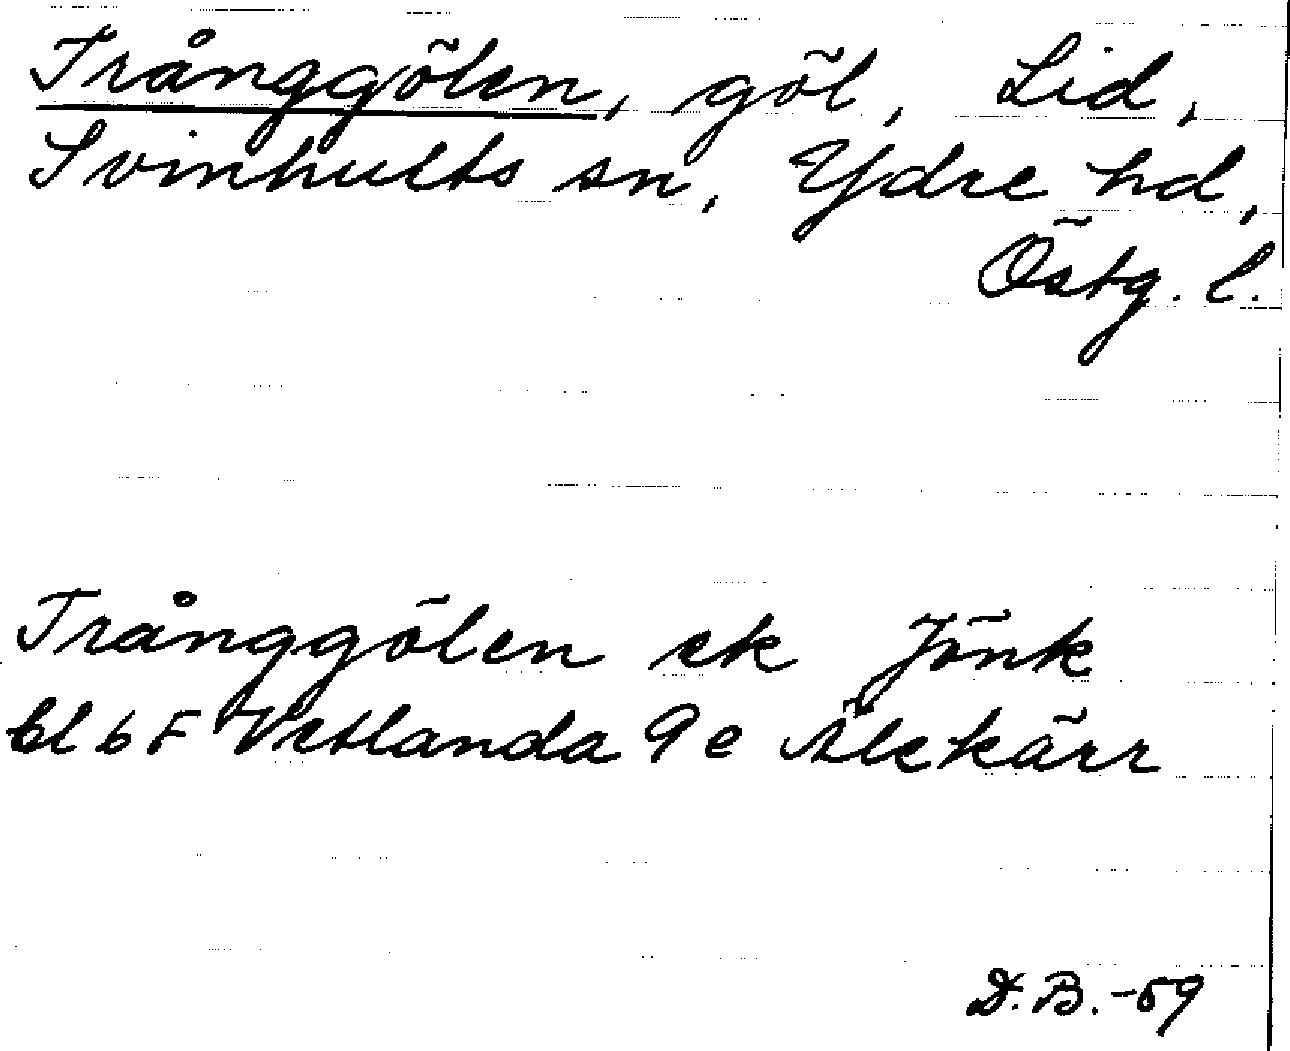 Trånggölen, göl, Lid,
Svinhults sn, Ydre hd,
Östg. l.
Trånggölen ek Jönk
bl 6 F Vetlanda 9 e Älekärr
D.B. -59